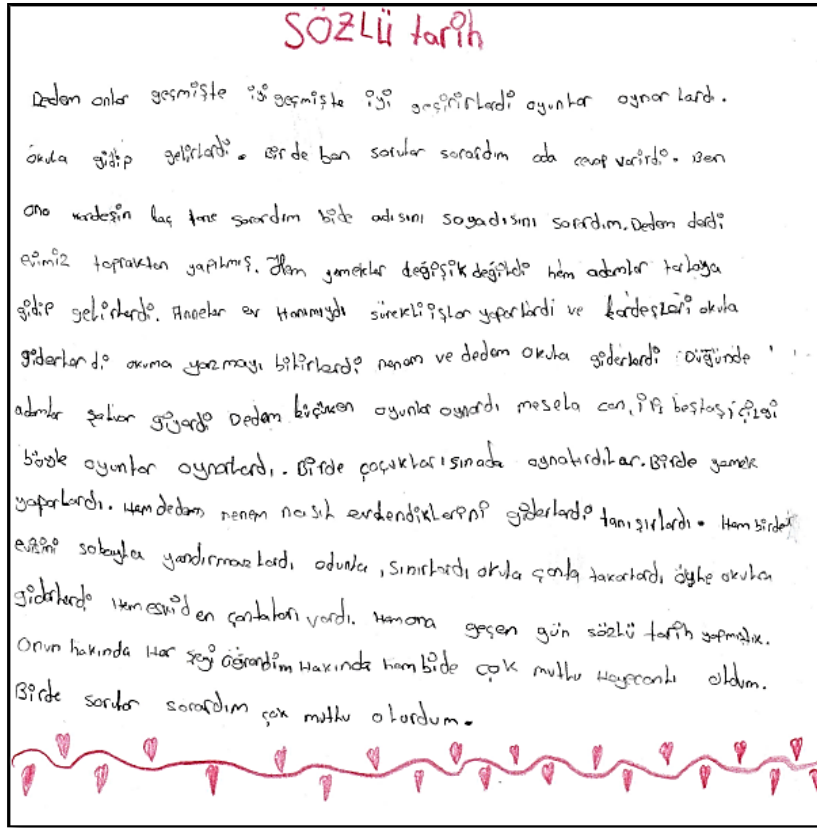 SÖZLÜ tarih
Dedem onlar geçmişte iyi geçmişte iyi geçirirlerdi oyunlar oynar lardı.
okula gidip gelirlerdi. Birde ben sorular sorardım oda cevap verirdi. Ben
ona kardeşin kaç tane sorardım bide adısını soyadısını sorardım. Dedem derdi
evimiz topraktan yapılmış. Hem yemekler değişik değildi hem adamlar tarlaya
gidip gelirlerdi. Anneler ev Hanımıydı sürekli işler yaparlardi ve kardeşleri okula
giderler di okuma yazmayı bilirlerdi nenem ve dedem okula giderlerdi Düğünde
adamlar şalvar giyerdi Dedem küçüken oyunlar oynardı mesela can, ip, beştaş, çizgi
böyle oyunlar oynarlardı. Birde çocuklarısınada oynatırdılar. Birde yemek
yaparlardı. Hem dedem nenem nasıl evlendiklerini giderlerdi tanışırlardı. Hem birde
evisini sobayla yandırmazlardı odunla, sınırlardı okula çanta takarlardı öyle okula
giderlerdi Hem eskiden çantaları vardı. Hem ona geçen gün sözlü tarih yapmıştık.
Onun hakında Her şeyi öğrendim Hakında hem bide çok mutlu Heyecanlı oldum.
Birde sorular sorardım çok mutlu olurdum.